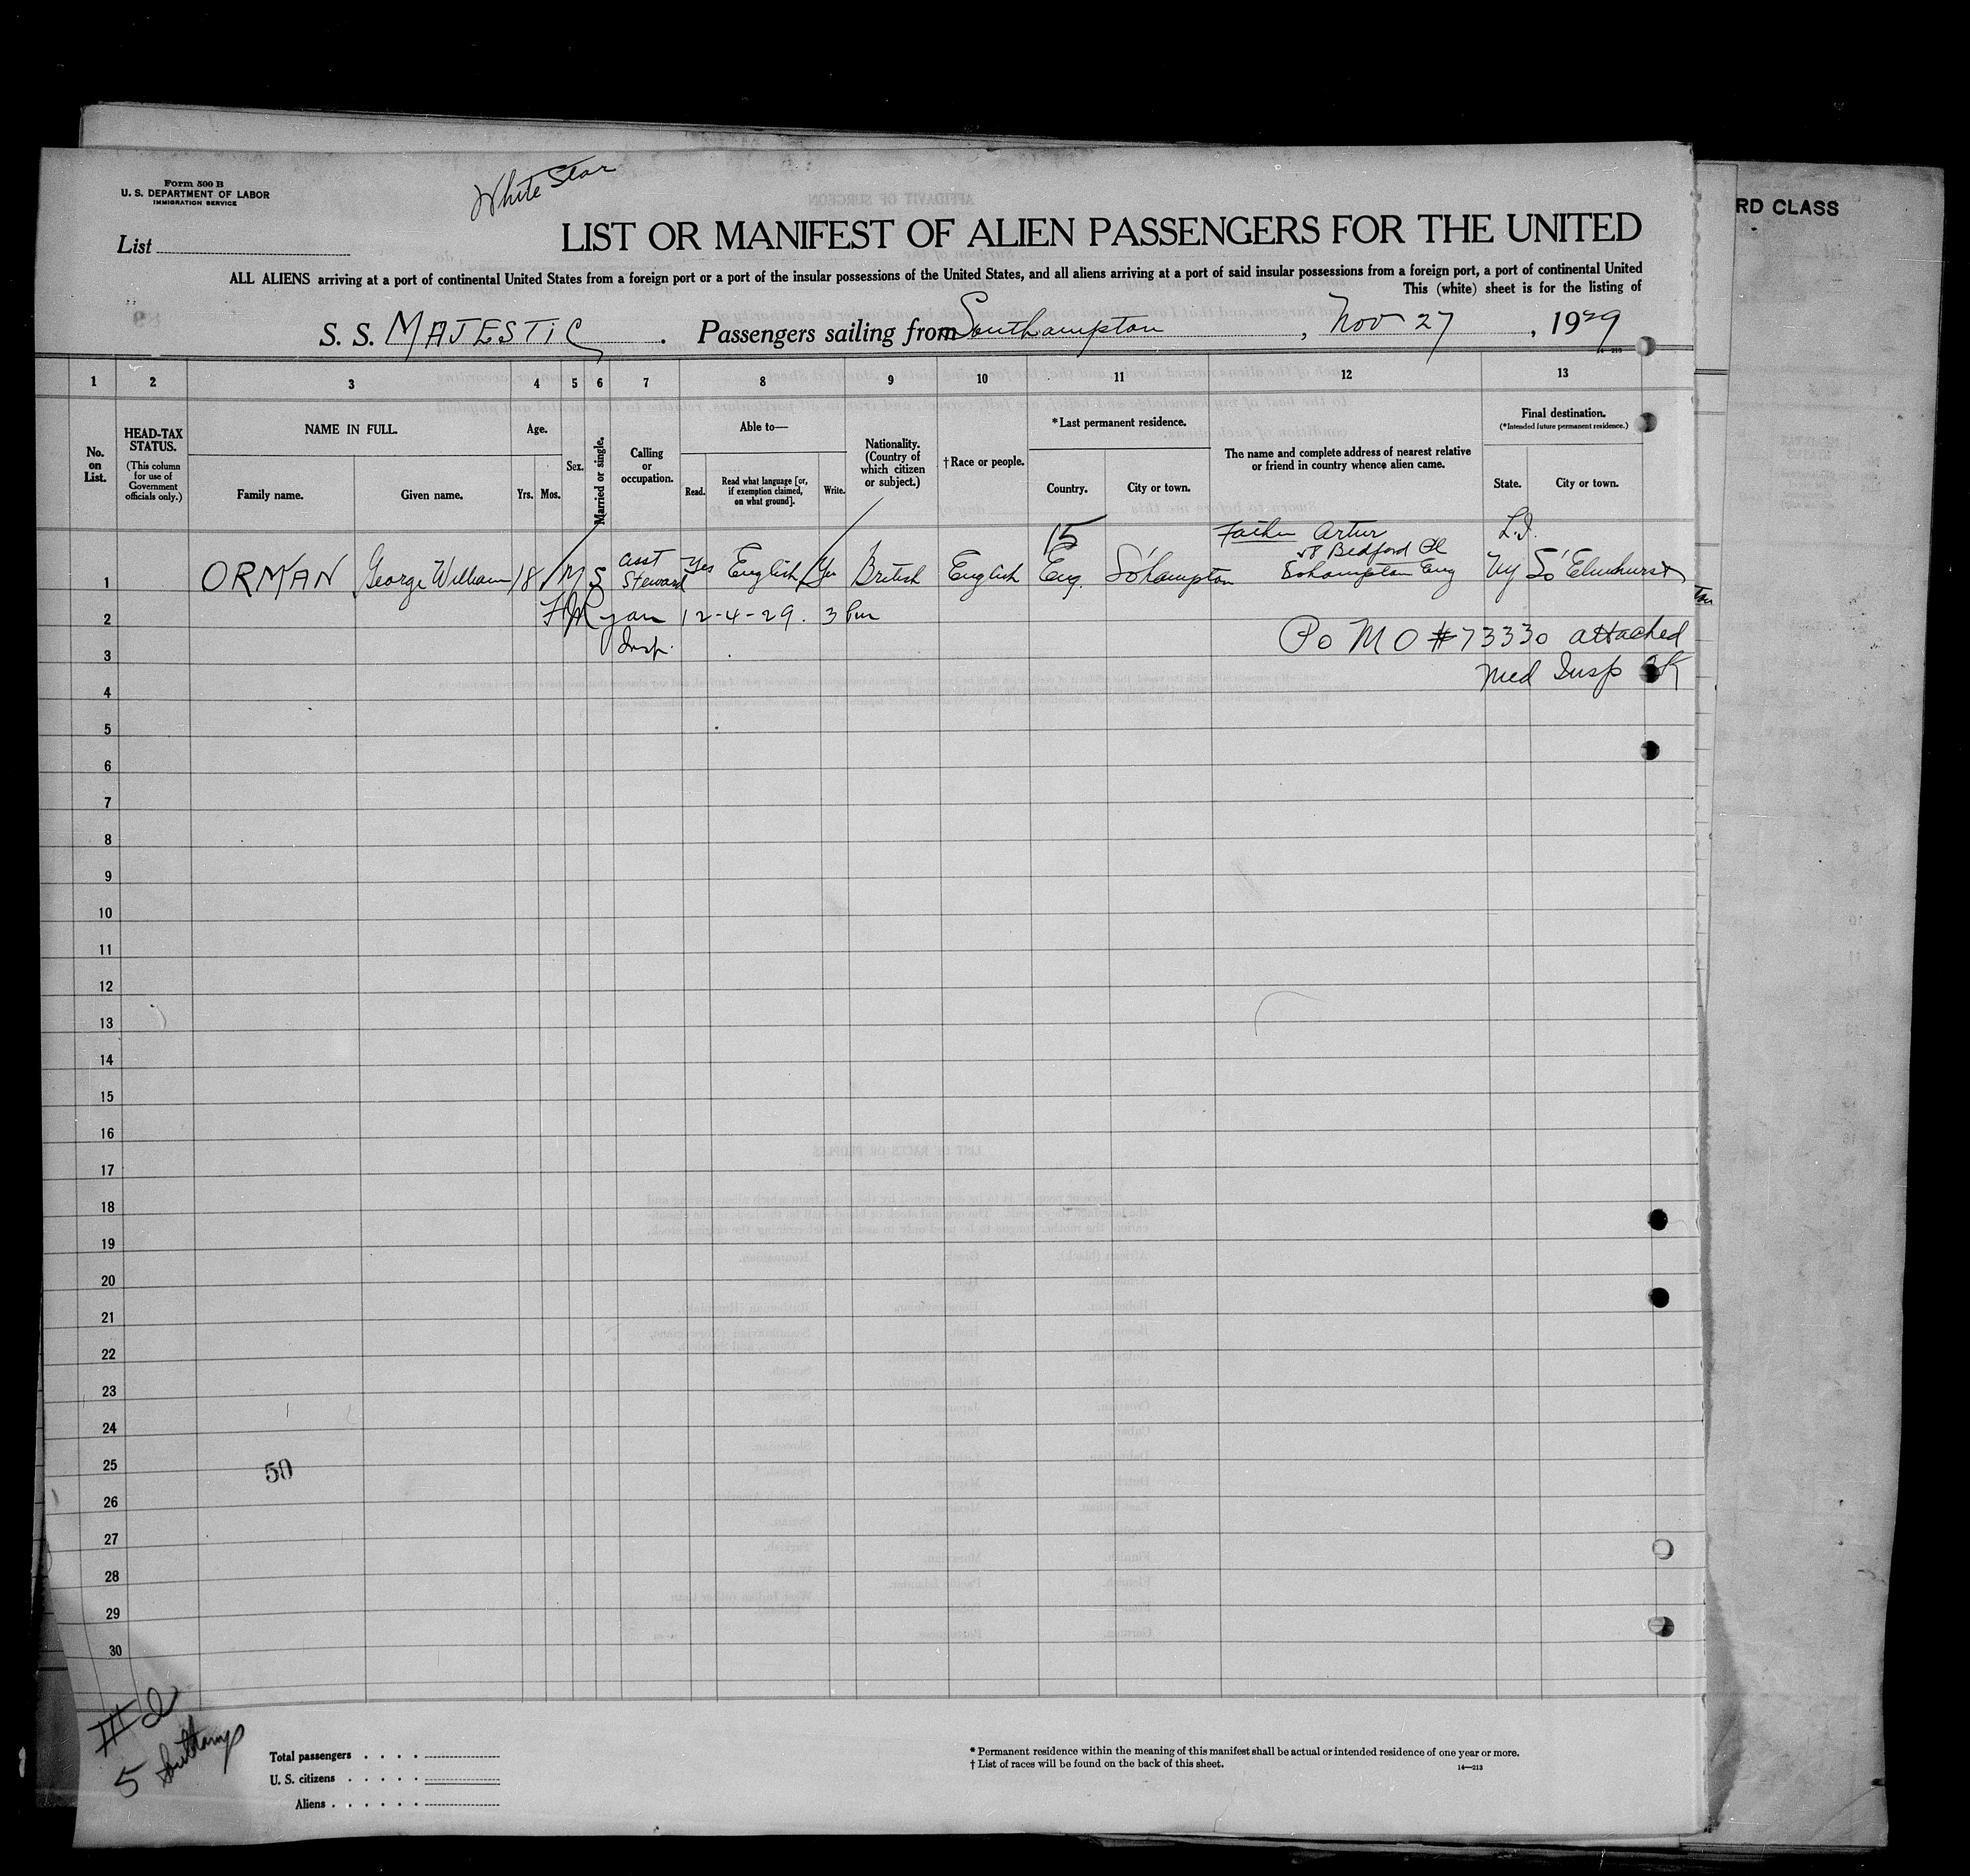 Form 500 B
U. S. DEPARTMENT OF LABOR
IMMIGRATION SERVICE
White Star
RD CLASS
List
LIST OR MANIFEST OF ALIEN PASSENGERS FOR THE UNITED
ALL ALIENS arriving at a port of continental United States from a foreign port or a port of the insular possessions of the United States, and all aliens arriving at a port of said insular possessions from a foreign port, a port of continental United
This (white) sheet is for the listing of
S. S. MAJESTIC . Passengers sailing from Southampton , Nov 27 , 1929
1 2 3 4 5 6 7 8 9 10 11 12 13
No. on List.
HEAD-TAX STATUS.
(This column for use of Government officials only.)
NAME IN FULL.
Family name. Given name.
Age.
Yrs. Mos.
Sex.
Married or single.
Calling or occupation.
Able to—
Read. Read what language [or, if exemption claimed, on what ground]. Write.
Nationality. (Country of which citizen or subject.)
†Race or people.
*Last permanent residence.
Country. City or town.
The name and complete address of nearest relative or friend in country whence alien came.
Final destination.
(*Intended future permanent residence.)
State. City or town.
15
Father Artur
L.I.
Bedford Pl
1 ORMAN George William 18 M S asst Steward Yes English Yes British English Eng. So'hampton Sohampton Eng NY So' Elmhurst
2 Ryan 12-4-29. 3 Pm
Insp.
Po M O #73330 attached
3
Med Insp OK
4
5
6
7
8
9
10
11
12
13
14
15
16
17
18
19
20
21
22
23
24
25
50
26
27
28
29
30
5 Southamp
Total passengers
U. S. citizens
Aliens
* Permanent residence within the meaning of this manifest shall be actual or intended residence of one year or more.
† List of races will be found on the back of this sheet.
14—213